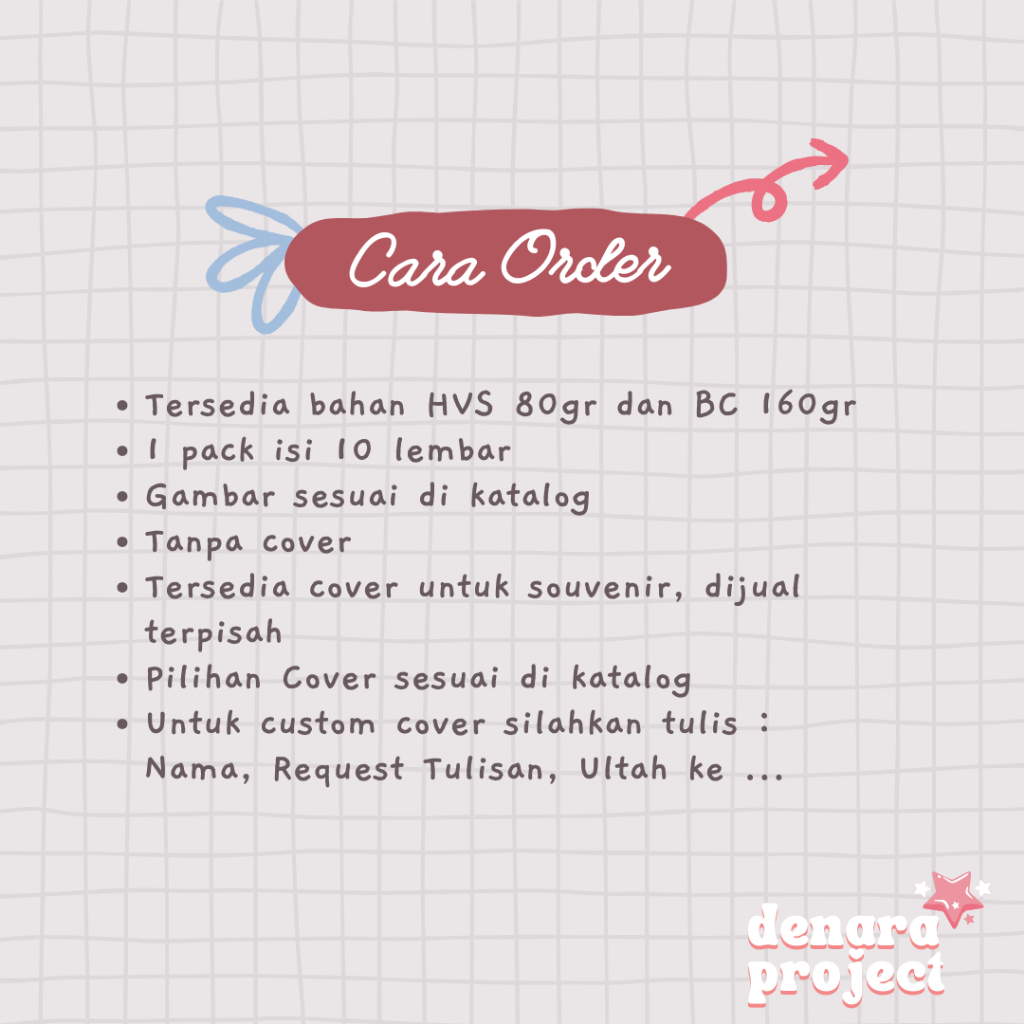 Cara Order
• Tersedia bahan HVS 80gr dan BC 160gr
• 1 pack isi 10 lembar
• Gambar sesuai di katalog
• Tanpa cover
• Tersedia cover untuk souvenir, dijual
terpisah
• Pilihan Cover sesuai di katalog
• Untuk custom cover silahkan tulis :
Nama, Request Tulisan, Ultah ke ...
denara
project